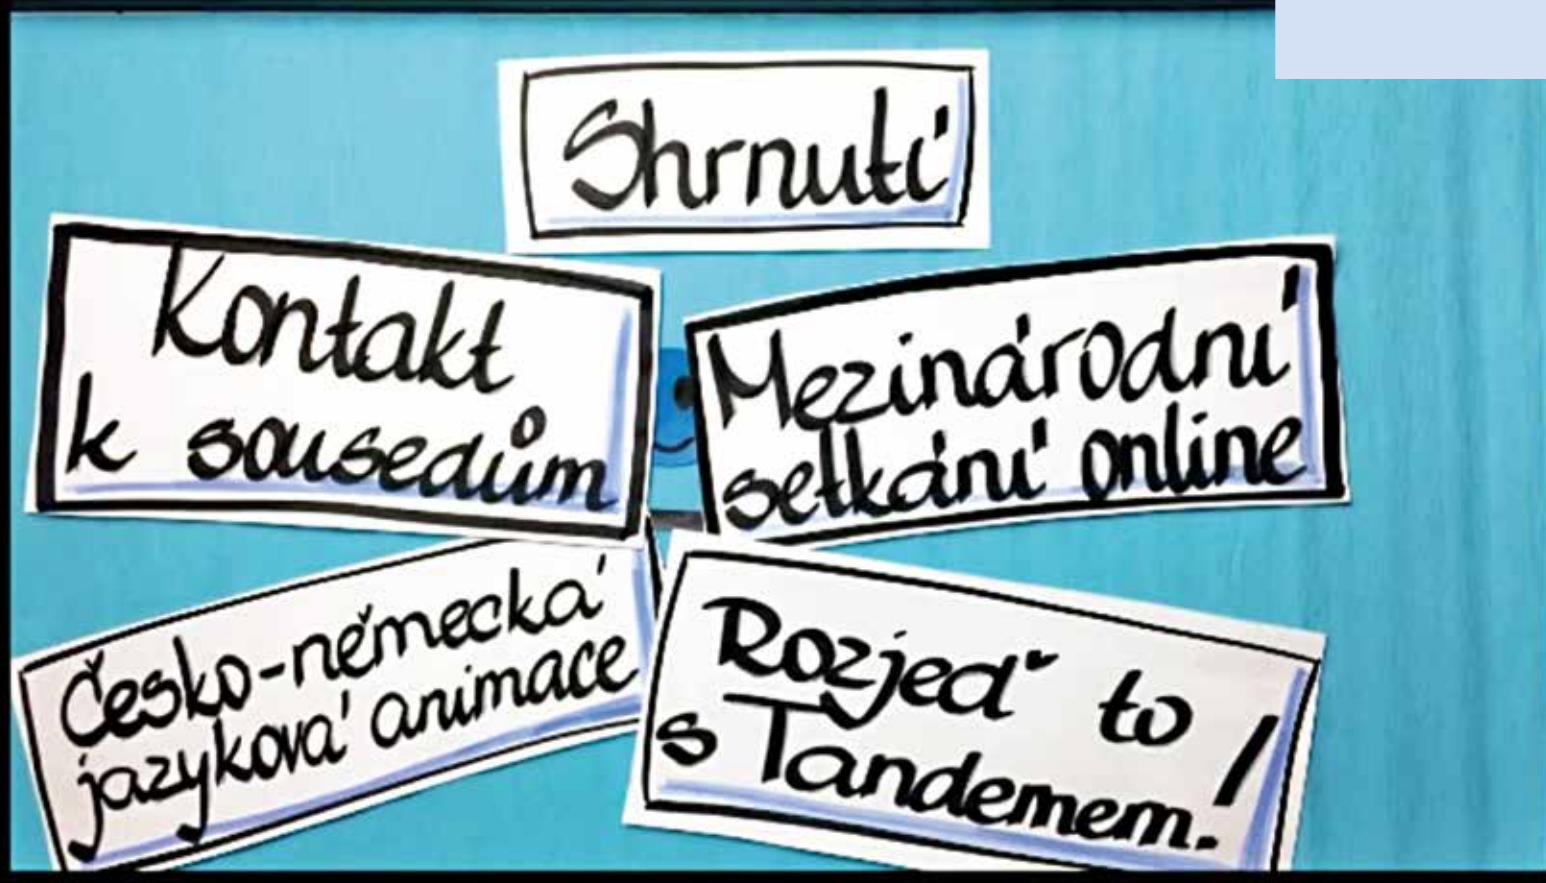 Shrnutí
Kontakt
k sousedům
Mezinárodní
setkání online
Česko-německá
jazyková animace
Rozjeď to
s Tandemem!